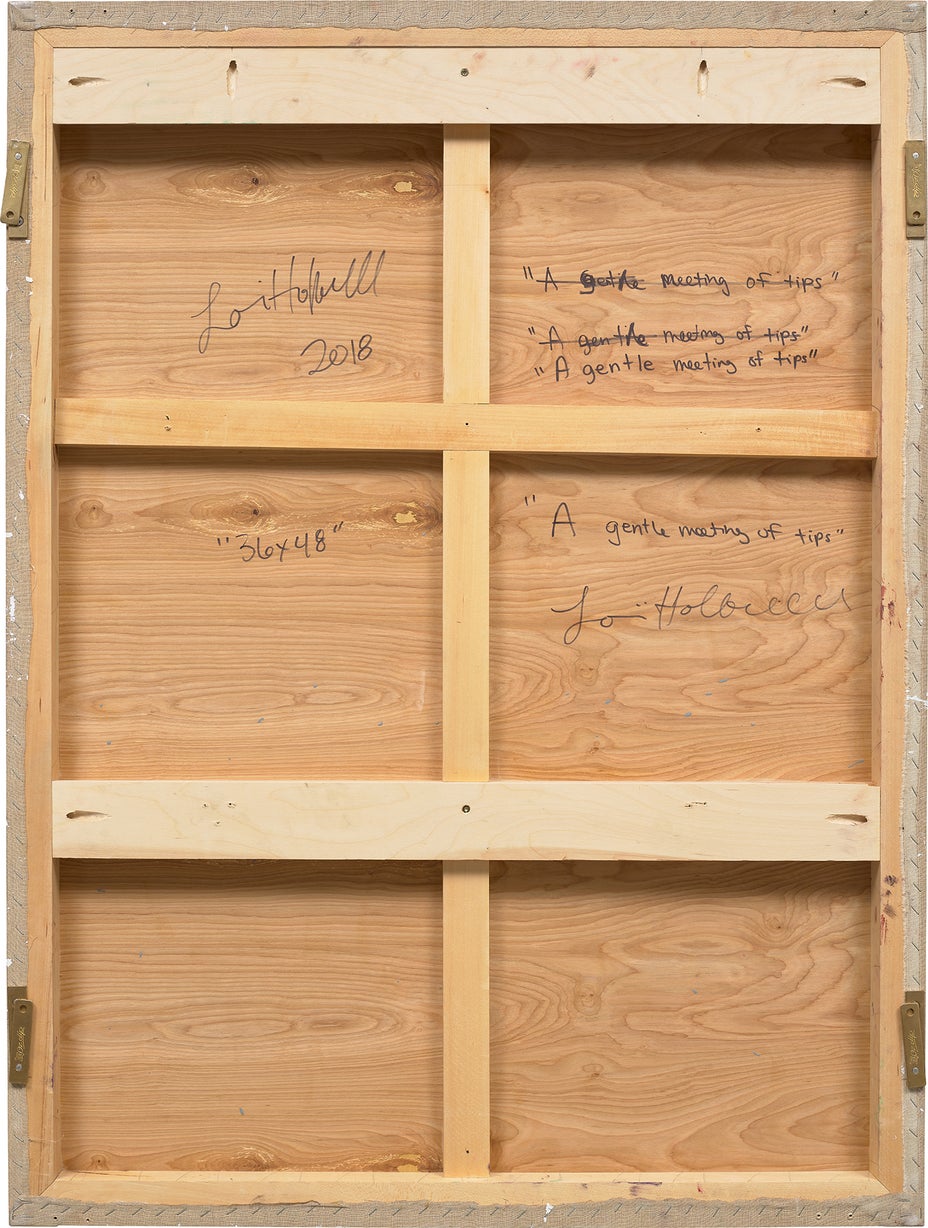 Loie Hollowell
2018
"A gentle meeting of tips"
"A gentle meeting of tips"
"A gentle meeting of tips"
"36x48"
"A gentle meeting of tips"
Loie Hollowell